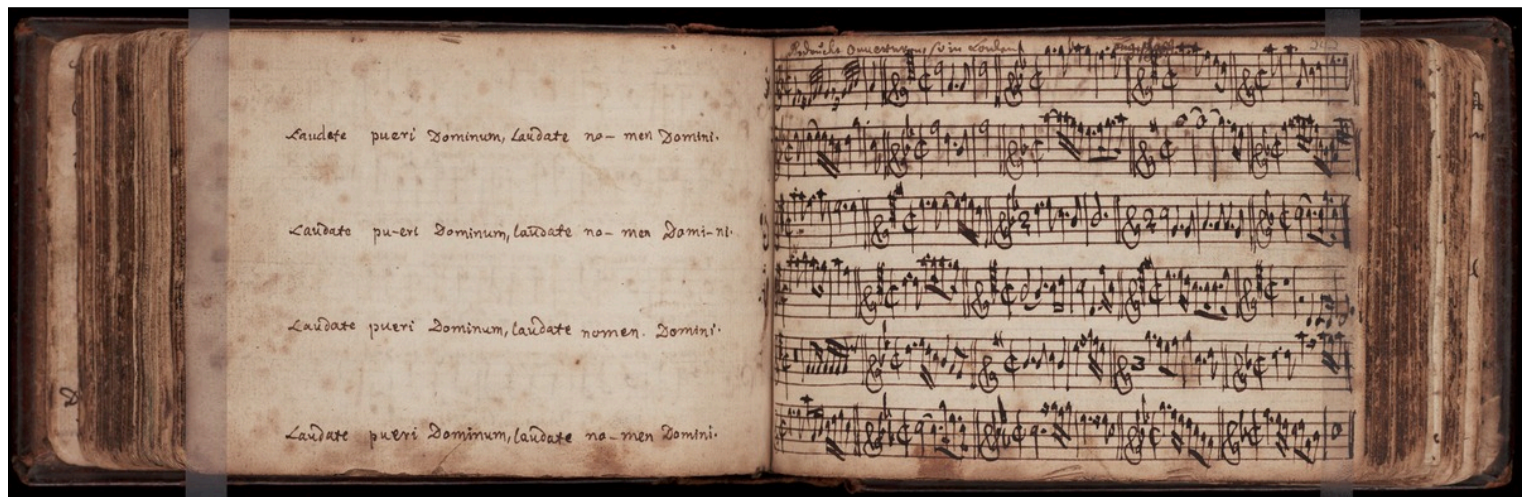 Laudate pueri Dominum, Laudate no- men Domini.
Laudate pu-eri Dominum, laudate no- men Domi-ni.
Laudate pueri Dominum, laudate nomen. Domini.
Laudate pueri Dominum, laudate no-men Domini.
Ouverturens in London